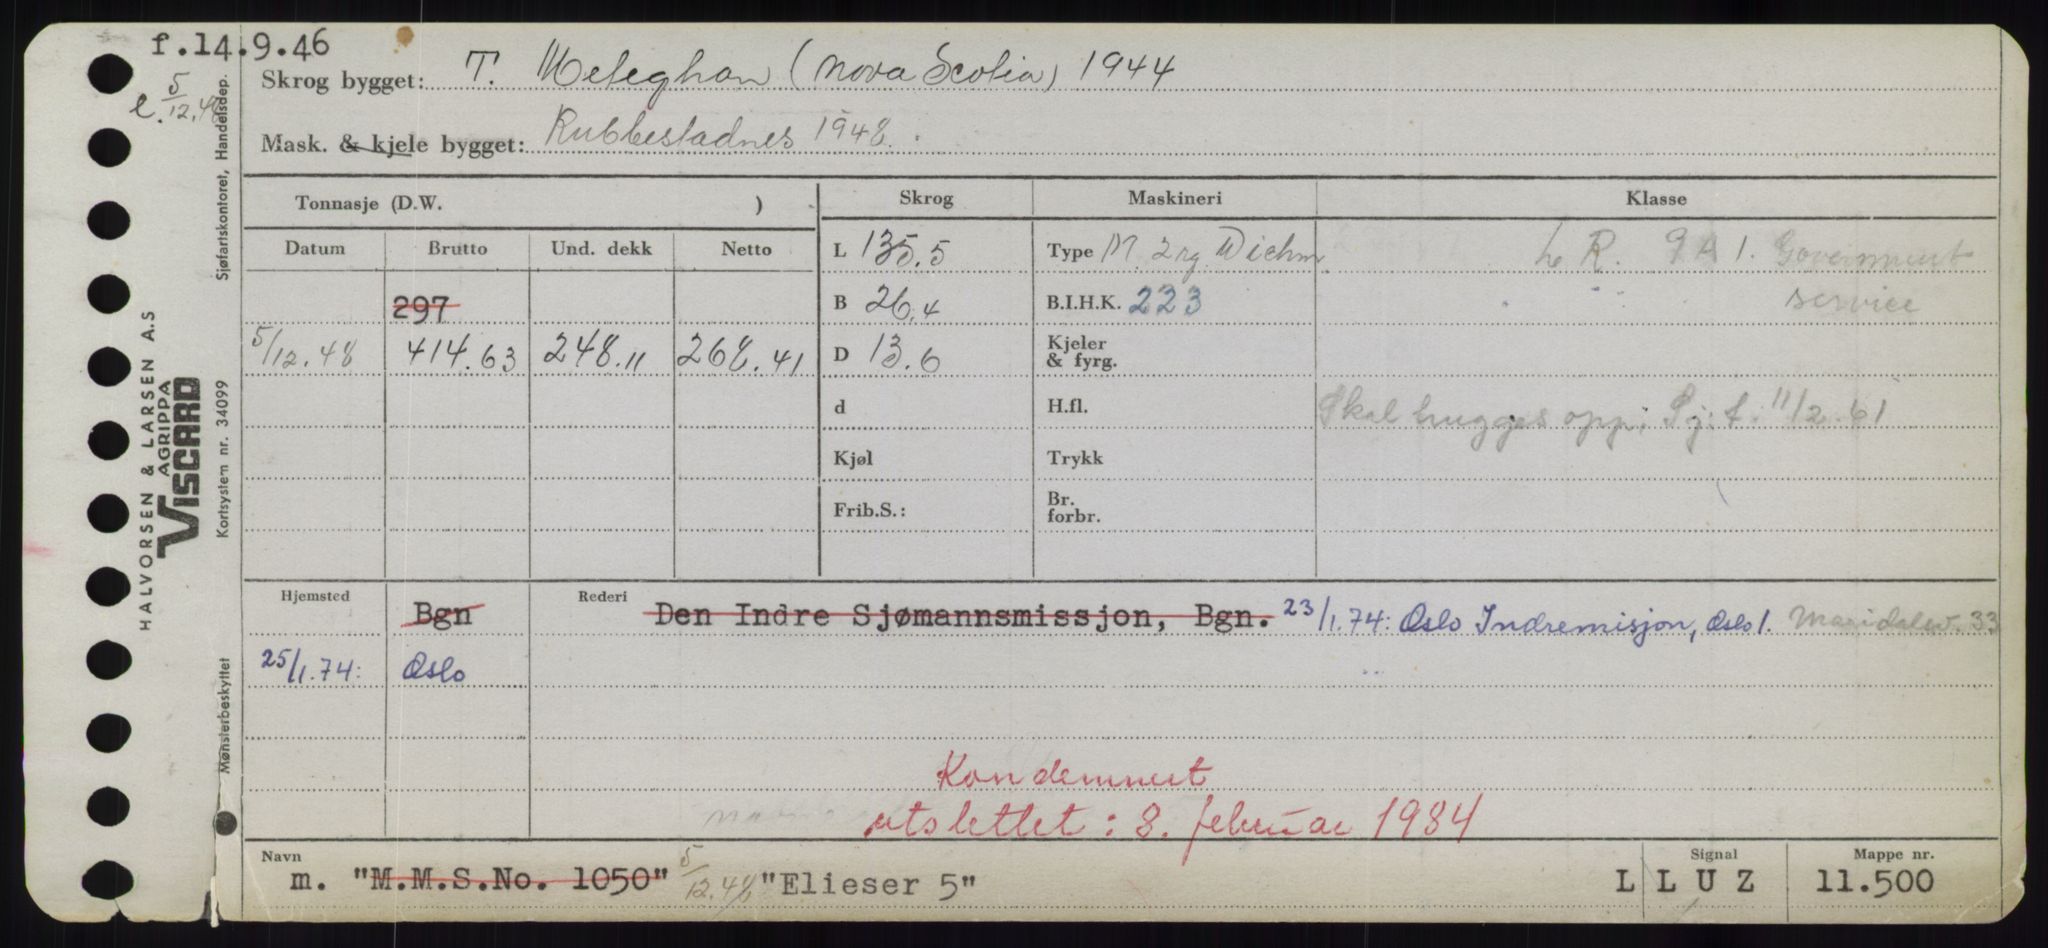 f.14.9.46
e. 5/12.48
Skrog bygget: T. Meteghan (Nova Scotia) 1944
Mask. & kjele bygget: Rubbestadnes 1948.
Tonnasje (D.W. )
Skrog
Maskineri
Klasse
Datum Brutto Und. dekk Netto
L 135.5
Type M. 2 rg Wichm
L R. 9 A 1. Government
297
B 26.4
B.I.H.K. 223
service
5/12.48 414.63 248.11 268.41
D 13.6
Kjeler
& fyrg.
d
H.fl.
Skal hugges opp; Sj.f. 11/2.61
Kjøl
Trykk
Frib.S.:
Br.
forbr.
Hjemsted Bgn
Rederi Den Indre Sjømannsmissjon, Bgn. 23/1.74: Oslo Indremisjon, Oslo 1. Maridalsv. 33
25/1.74: Oslo
Kondemnert
utslettet: 8. februar 1984
Navn
Signal
Mappe nr.
m. "M.M.S.No. 1050" 5/12.48 "Elieser 5"
L L U Z
11.500
HALVORSEN & LARSEN A.S
AGRIPPA
VISCARD
Sjøfartskontoret, Handelsdep.
Kortsystem nr. 34099
Mønsterbeskyttet